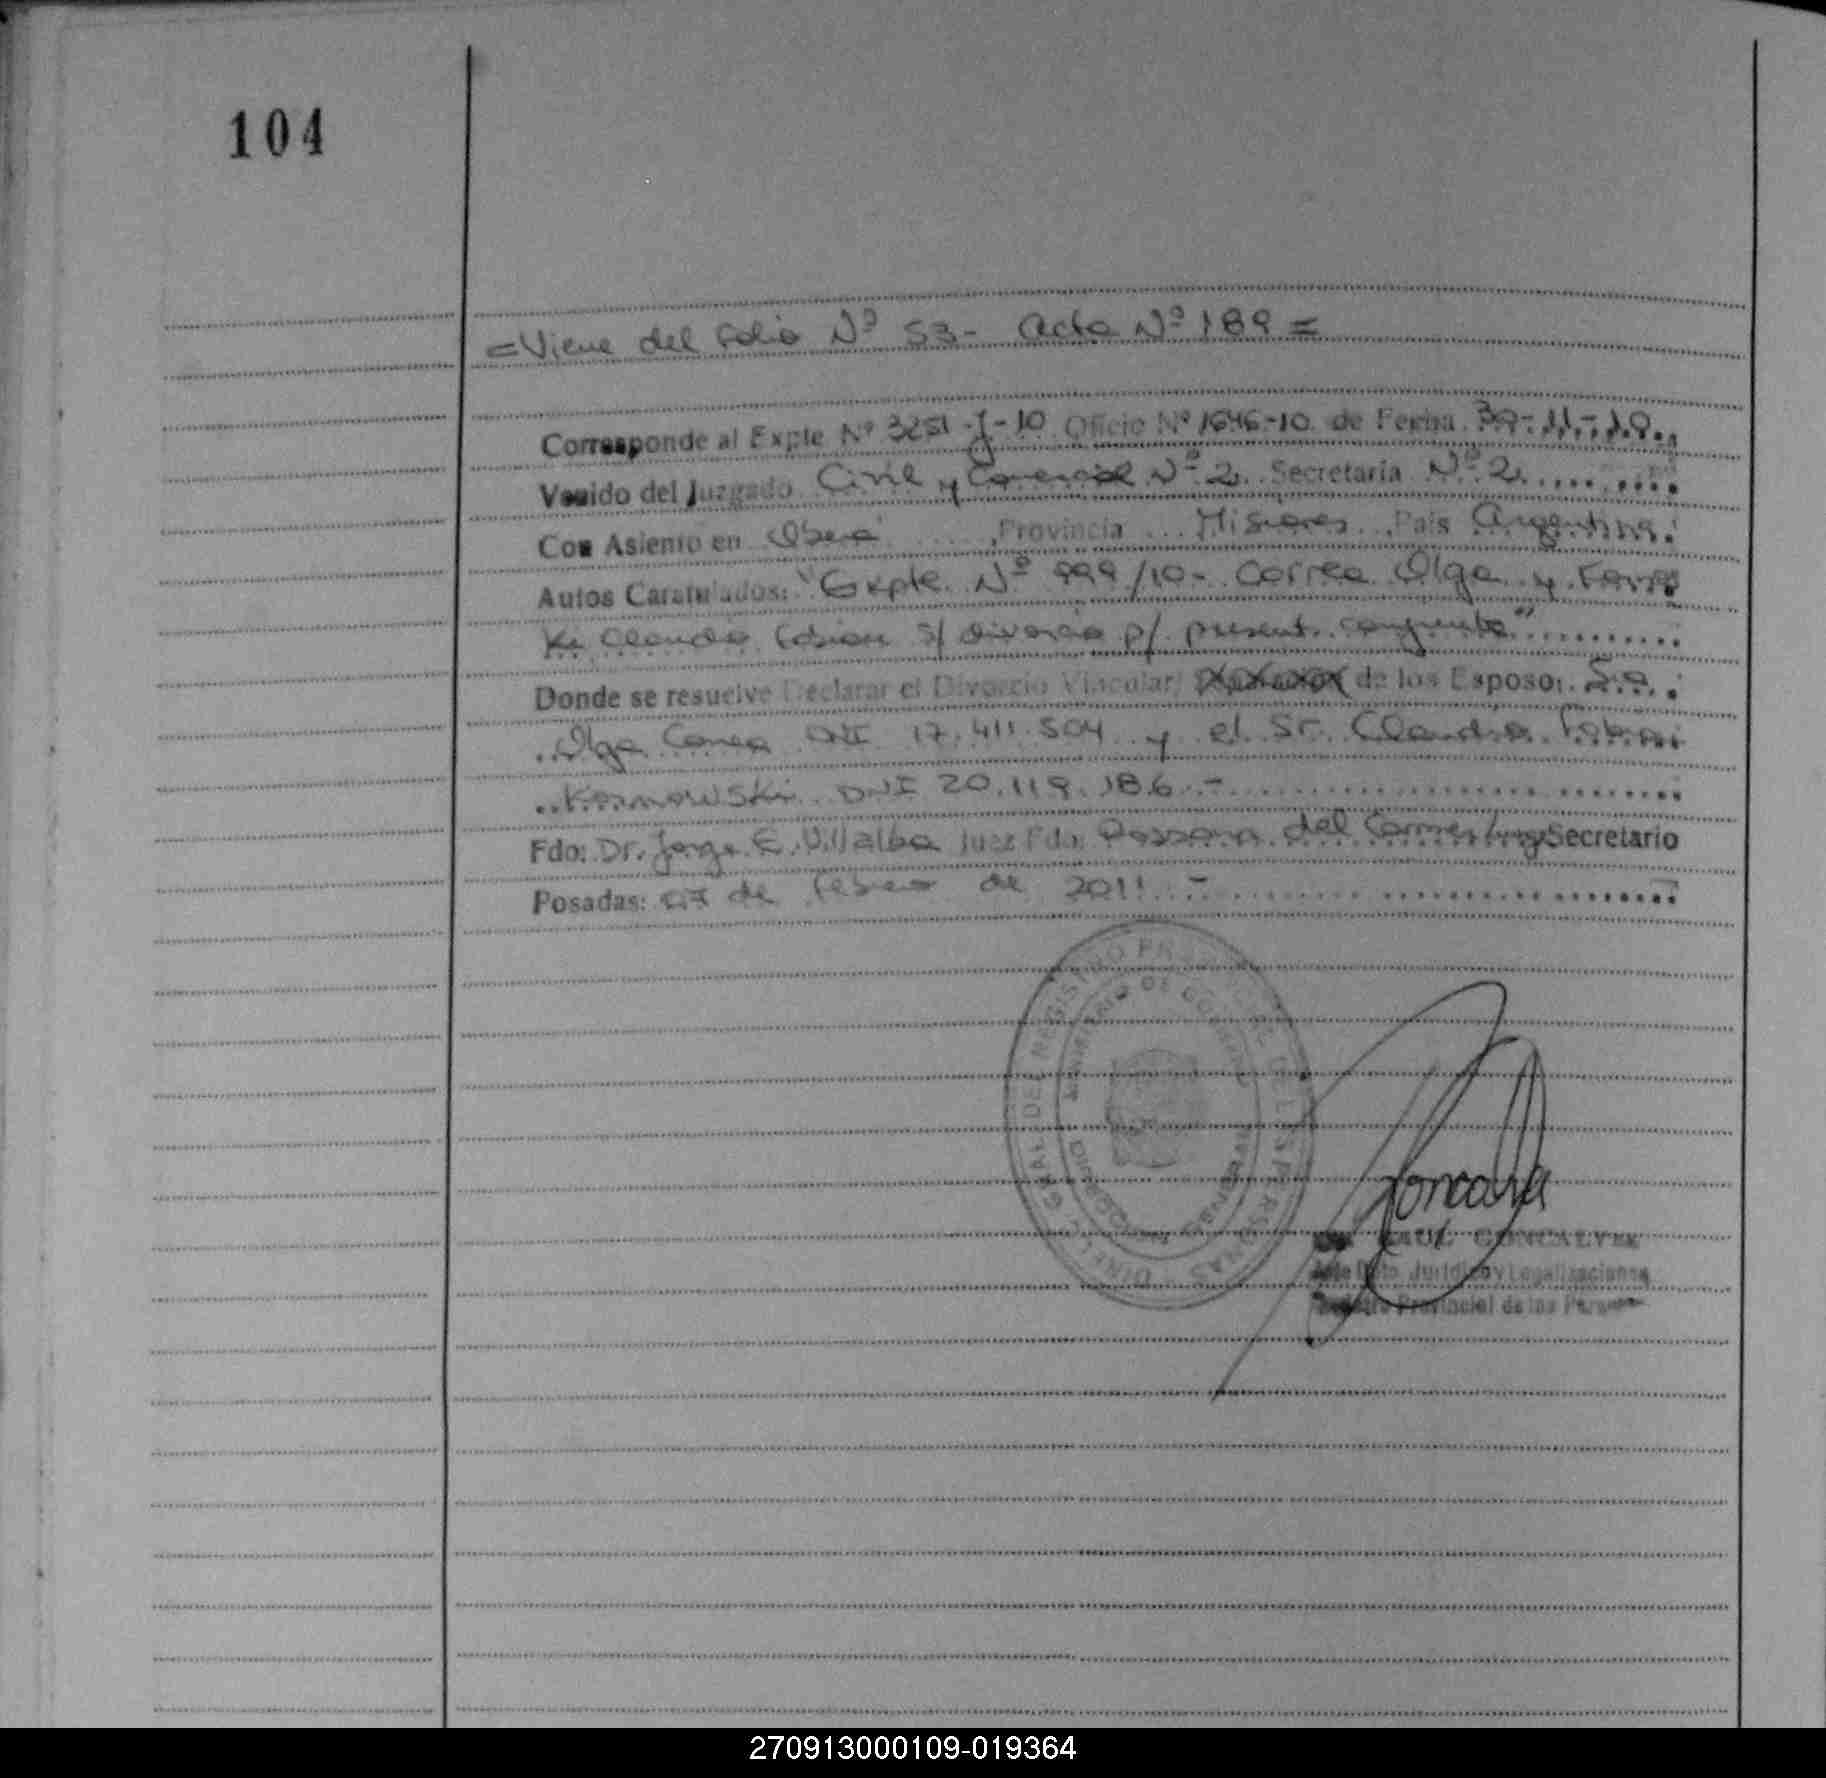 104
= Viene del folio Nº 53 - Acta Nº 189 =
Corresponde al Expte Nº 3251-J-10 Oficio Nº 1646-10 de Fecha 30-11-10
Venido del Juzgado Civil y Comercial Nº 2 Secretaria Nº 2
Con Asiento en Oberá, Provincia Misiones, Pais Argentina
Autos Caratulados: "Expte. Nº 999/10 - Correa Olga y
Claudio Fabian s/ divorcio p/ present. conjunta"
Donde se resuelve Declarar el Divorcio Vincular/ de los Esposos: Sra.
Olga Correa DNI 17.411.504 y el Sr. Claudio Fabian
DNI 20.119.186.-
Fdo: Dr. Jorge E. Villalba Juez Fdo: Rossana del Carmen Secretario
Posadas: 07 de febrero de 2011.-
DIREC. GRAL DEL REGISTRO PROVINCIAL DE LAS PERSONAS
MINISTERIO DE GOBIERNO
DIRECCION GENERAL
RAUL GONCALVES
Jefe Dpto. Jurídico y Legalizaciones
Registro Provincial de las Personas
270913000109-019364